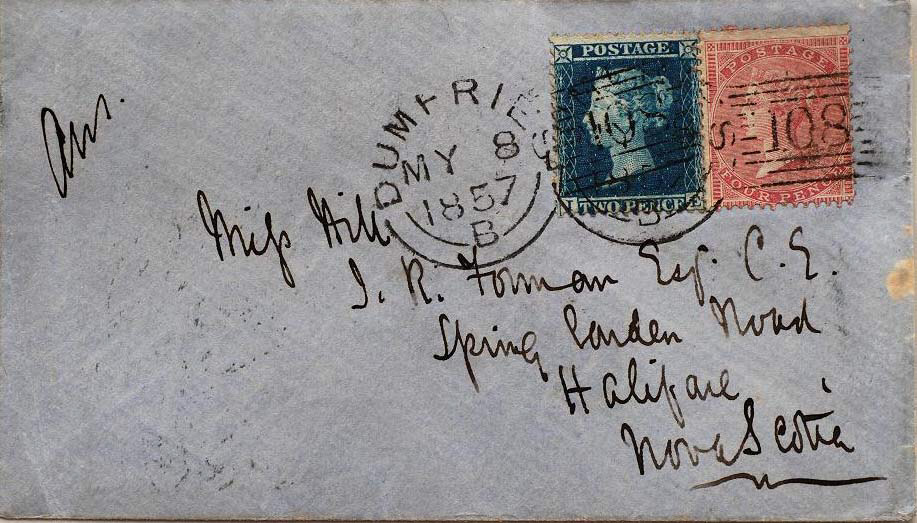 POSTAGE
TWO PENCE
POSTAGE
FOUR PENCE
108
DUMFRIES
MY 8
1857
B
Ans.
Miss Hill
J. R. Forman Esq. C. E.
Spring Garden Road
Halifax
Nova Scotia